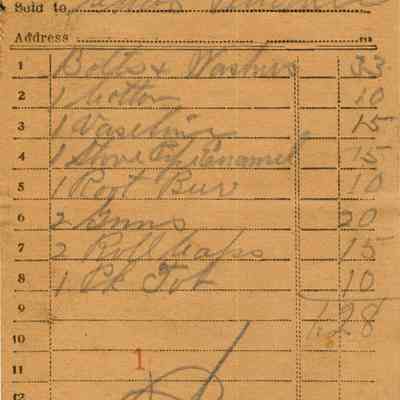 Sold to
Address
1 Bolts & Washers 33
2 1 Cotton 10
3 1 Vaseline 15
4 1 Stove Pipe Enamel 15
5 1 Root Beer 10
6 2 Gums 20
7 2 Roll Caps 15
8 1 Pk Tob 10
9 1.28
10
11 1
12